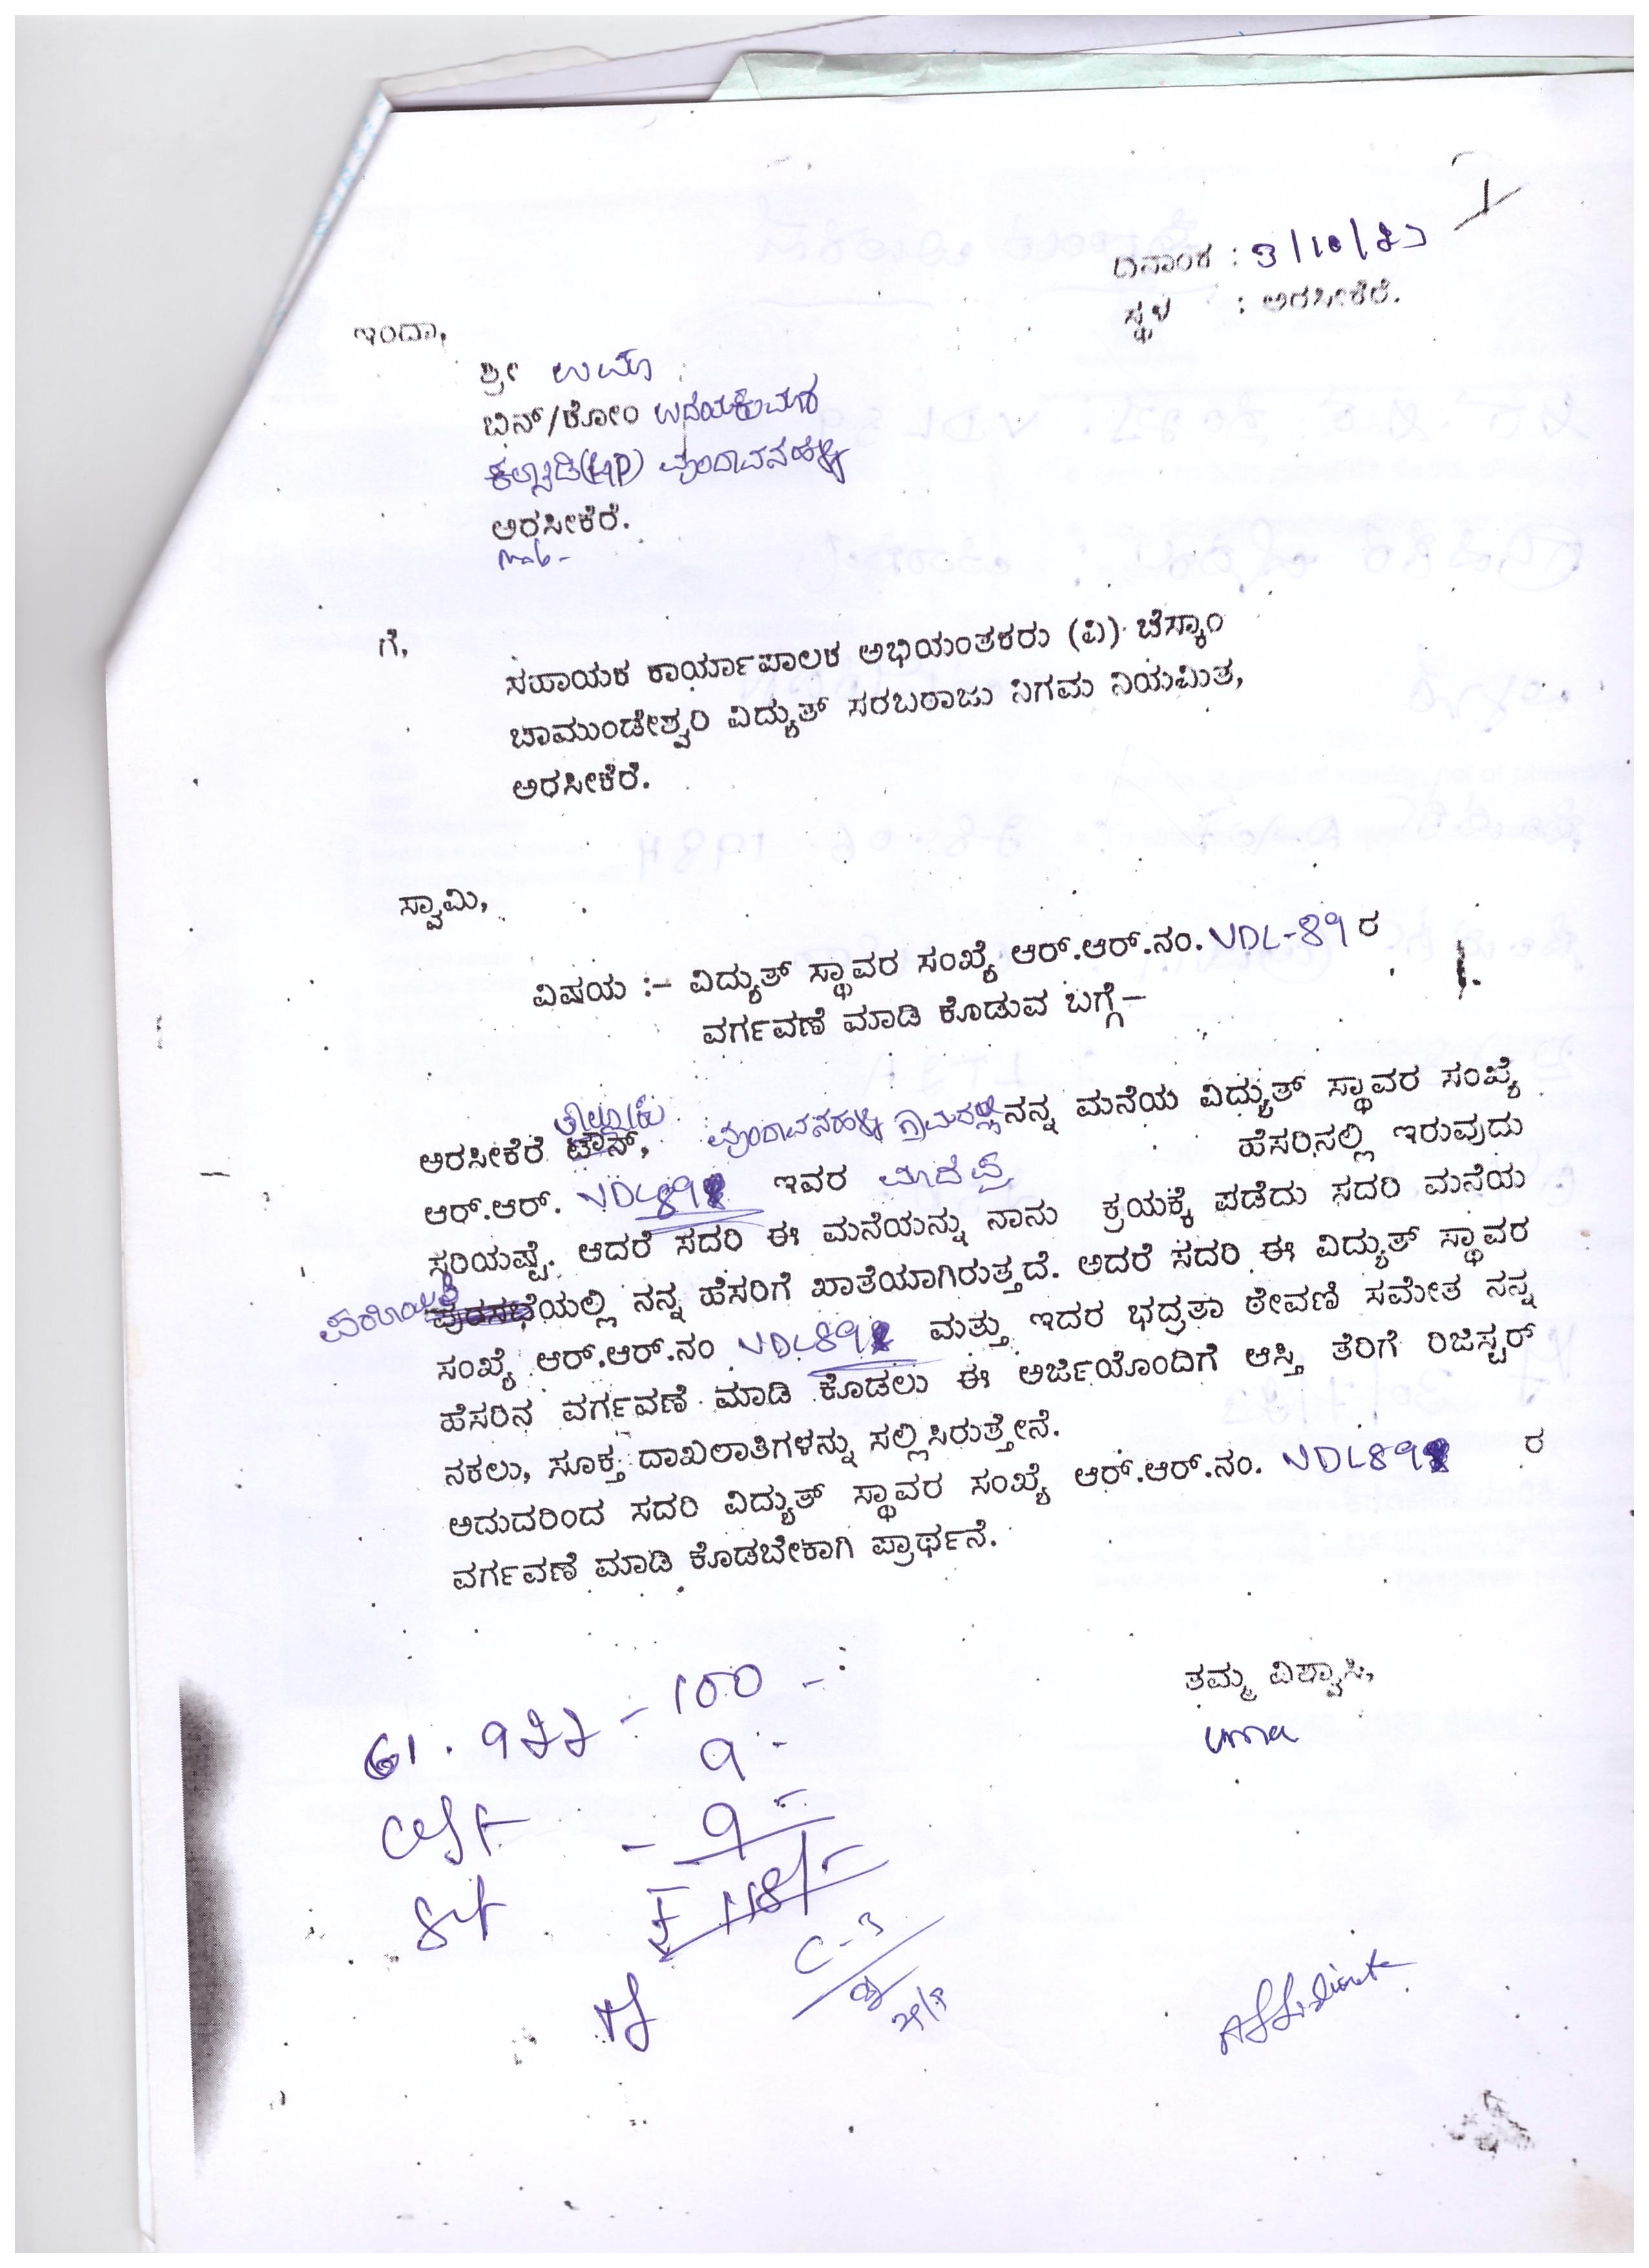 ದಿನಾಂಕ : 3/10/23
ಸ್ಥಳ : ಅರಸೀಕೆರೆ.
ಇಂದಾ,
ಶ್ರೀ ಉಮಾ
ಬಿನ್/ಕೋಂ ಉದಯಕುಮಾರ
(HP) ವೃಂದಾವನಹಳ್ಳಿ
ಅರಸೀಕೆರೆ.
mob-
ಗೆ,
ಸಹಾಯಕ ಕಾರ್ಯಾಪಾಲಕ ಅಭಿಯಂತಕರು (ವಿ) ಚೆಸ್ಕಾಂ
ಚಾಮುಂಡೇಶ್ವರಿ ವಿದ್ಯುತ್ ಸರಬರಾಜು ನಿಗಮ ನಿಯಮಿತ,
ಅರಸೀಕೆರೆ.
ಸ್ವಾಮಿ,
ವಿಷಯ :– ವಿದ್ಯುತ್ ಸ್ಥಾವರ ಸಂಖ್ಯೆ ಆರ್.ಆರ್.ನಂ. VDL-89 ರ
ವರ್ಗವಣೆ ಮಾಡಿ ಕೊಡುವ ಬಗ್ಗೆ–
ತಾಲ್ಲೂಕು
ಅರಸೀಕೆರೆ ಟೌನ್, ವೃಂದಾವನಹಳ್ಳಿ ಗ್ರಾಮದಲ್ಲಿ ನನ್ನ ಮನೆಯ ವಿದ್ಯುತ್ ಸ್ಥಾವರ ಸಂಖ್ಯೆ
ಆರ್.ಆರ್. VDL89 ಇವರ ಹೆಸರಿನಲ್ಲಿ ಇರುವುದು
ಸರಿಯಷ್ಟೆ. ಆದರೆ ಸದರಿ ಈ ಮನೆಯನ್ನು ನಾನು ಕ್ರಯಕ್ಕೆ ಪಡೆದು ಸದರಿ ಮನೆಯ
ಪುರಸಭೆಯಲ್ಲಿ ನನ್ನ ಹೆಸರಿಗೆ ಖಾತೆಯಾಗಿರುತ್ತದೆ. ಅದರೆ ಸದರಿ ಈ ವಿದ್ಯುತ್ ಸ್ಥಾವರ
ಸಂಖ್ಯೆ ಆರ್.ಆರ್.ನಂ VDL89 ಮತ್ತು ಇದರ ಭದ್ರತಾ ಠೇವಣಿ ಸಮೇತ ನನ್ನ
ಹೆಸರಿನ ವರ್ಗವಣೆ ಮಾಡಿ ಕೊಡಲು ಈ ಅರ್ಜಿಯೊಂದಿಗೆ ಆಸ್ತಿ ತೆರಿಗೆ ರಿಜಿಸ್ಟರ್
ನಕಲು, ಸೂಕ್ತ ದಾಖಲಾತಿಗಳನ್ನು ಸಲ್ಲಿಸಿರುತ್ತೇನೆ.
ಅದುದರಿಂದ ಸದರಿ ವಿದ್ಯುತ್ ಸ್ಥಾವರ ಸಂಖ್ಯೆ ಆರ್.ಆರ್.ನಂ. VDL89 ರ
ವರ್ಗವಣೆ ಮಾಡಿ ಕೊಡಬೇಕಾಗಿ ಪ್ರಾರ್ಥನೆ.
ತಮ್ಮ ವಿಶ್ವಾಸಿ,
uma
61.922 - 100 -
9 -
- 9 -
₹ 118/-
C-3